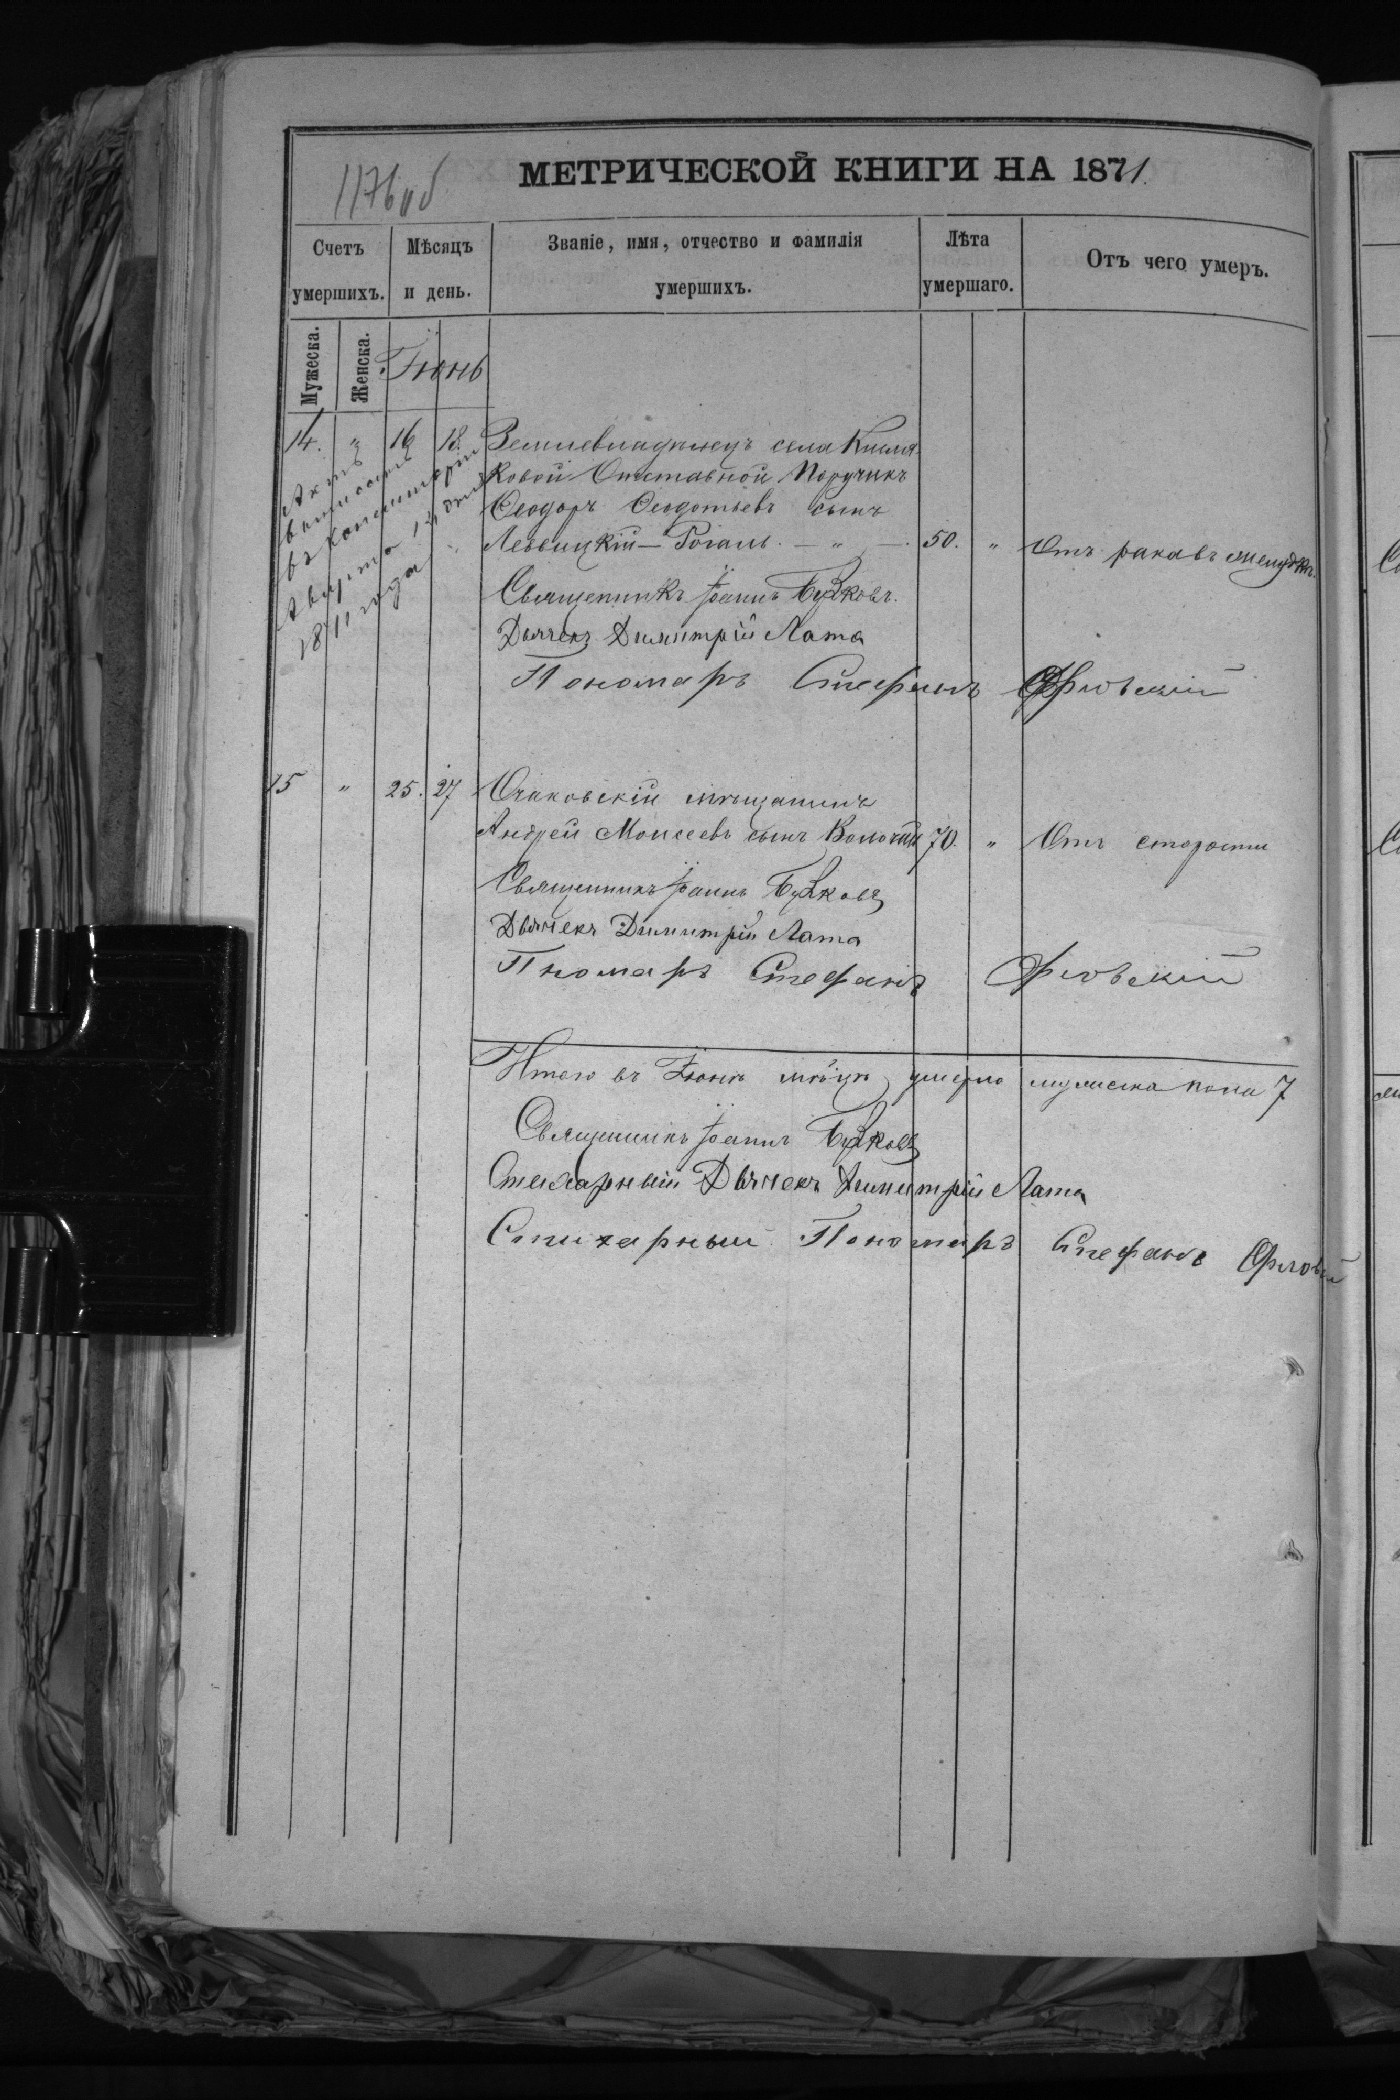 1176 об
МЕТРИЧЕСКОЙ КНИГИ НА 1871.
Счетъ умершихъ.
Мѣсяцъ и день.
Званіе, имя, отчество и фамилія умершихъ.
Лѣта умершаго.
Отъ чего умеръ.
Мужеска.
Женска.
Іюнь
14. " 16 18. Землевладѣлецъ села Кисля
ковой Отставной Поручикъ
Ѳеодоръ Ѳеодотьевъ сынъ
Левицкій — Рогаль. — " — . 50. " Отъ рака въ желудкѣ.
Актъ
выписанъ
въ Консисторіи
Августа
18 года
Священникъ Іоаннъ
Дьячекъ Димитрій Лата
Пономарь Стефанъ Орловскій
15 " 25. 27 Очаковскій мѣщанинъ
Андрей Моисеевъ сынъ 70. " Отъ старости
Священникъ Іоаннъ
Дьячекъ Димитрій Лата
Пномарь Стефанъ Орловскій
Итого въ Іюнѣ мѣсяцѣ умерло мужеска пола 7
Священникъ Іоаннъ
Стихарный Дьячекъ Димитрій Лата
Стихарный Пономарь Стефанъ